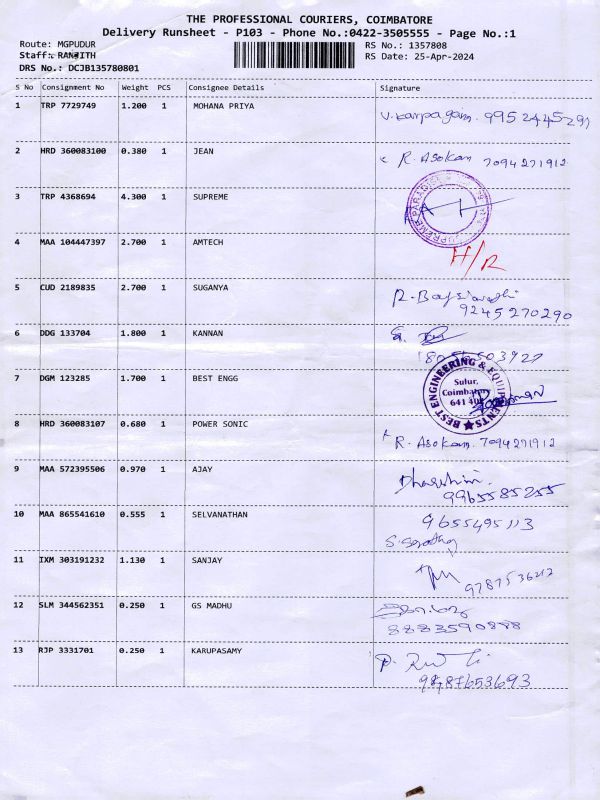 THE PROFESSIONAL COURIERS, COIMBATORE
Delivery Runsheet - P103 - Phone No.:0422-3505555 - Page No.:1
Route: MGPUDUR RS No.: 1357808
Staff: RANJITH RS Date: 25-Apr-2024
DRS No.: DCJB135780801
S No Consignment No Weight PCS Consignee Details Signature
1 TRP 7729749 1.200 1 MOHANA PRIYA
V. Karpagam. 9952445291
2 HRD 360083100 0.380 1 JEAN
R. Asokan 7094271912
3 TRP 4368694 4.300 1 SUPREME
SUPREME PARADISE
4 MAA 104447397 2.700 1 AMTECH
H/R
5 CUD 2189835 2.700 1 SUGANYA
9245270290
6 DDG 133704 1.800 1 KANNAN
7 DGM 123285 1.700 1 BEST ENGG
BEST ENGINEERING & EQUIPMENTS
Sulur,
Coimbatore
641 402
8 HRD 360083107 0.680 1 POWER SONIC
R. Asokan. 7094271912
9 MAA 572395506 0.970 1 AJAY
Dharshini.
9965585255
10 MAA 865541610 0.555 1 SELVANATHAN
9655495113
11 IXM 303191232 1.130 1 SANJAY
9787536212
12 SLM 344562351 0.250 1 GS MADHU
8883590888
13 RJP 3331701 0.250 1 KARUPASAMY
9787653693